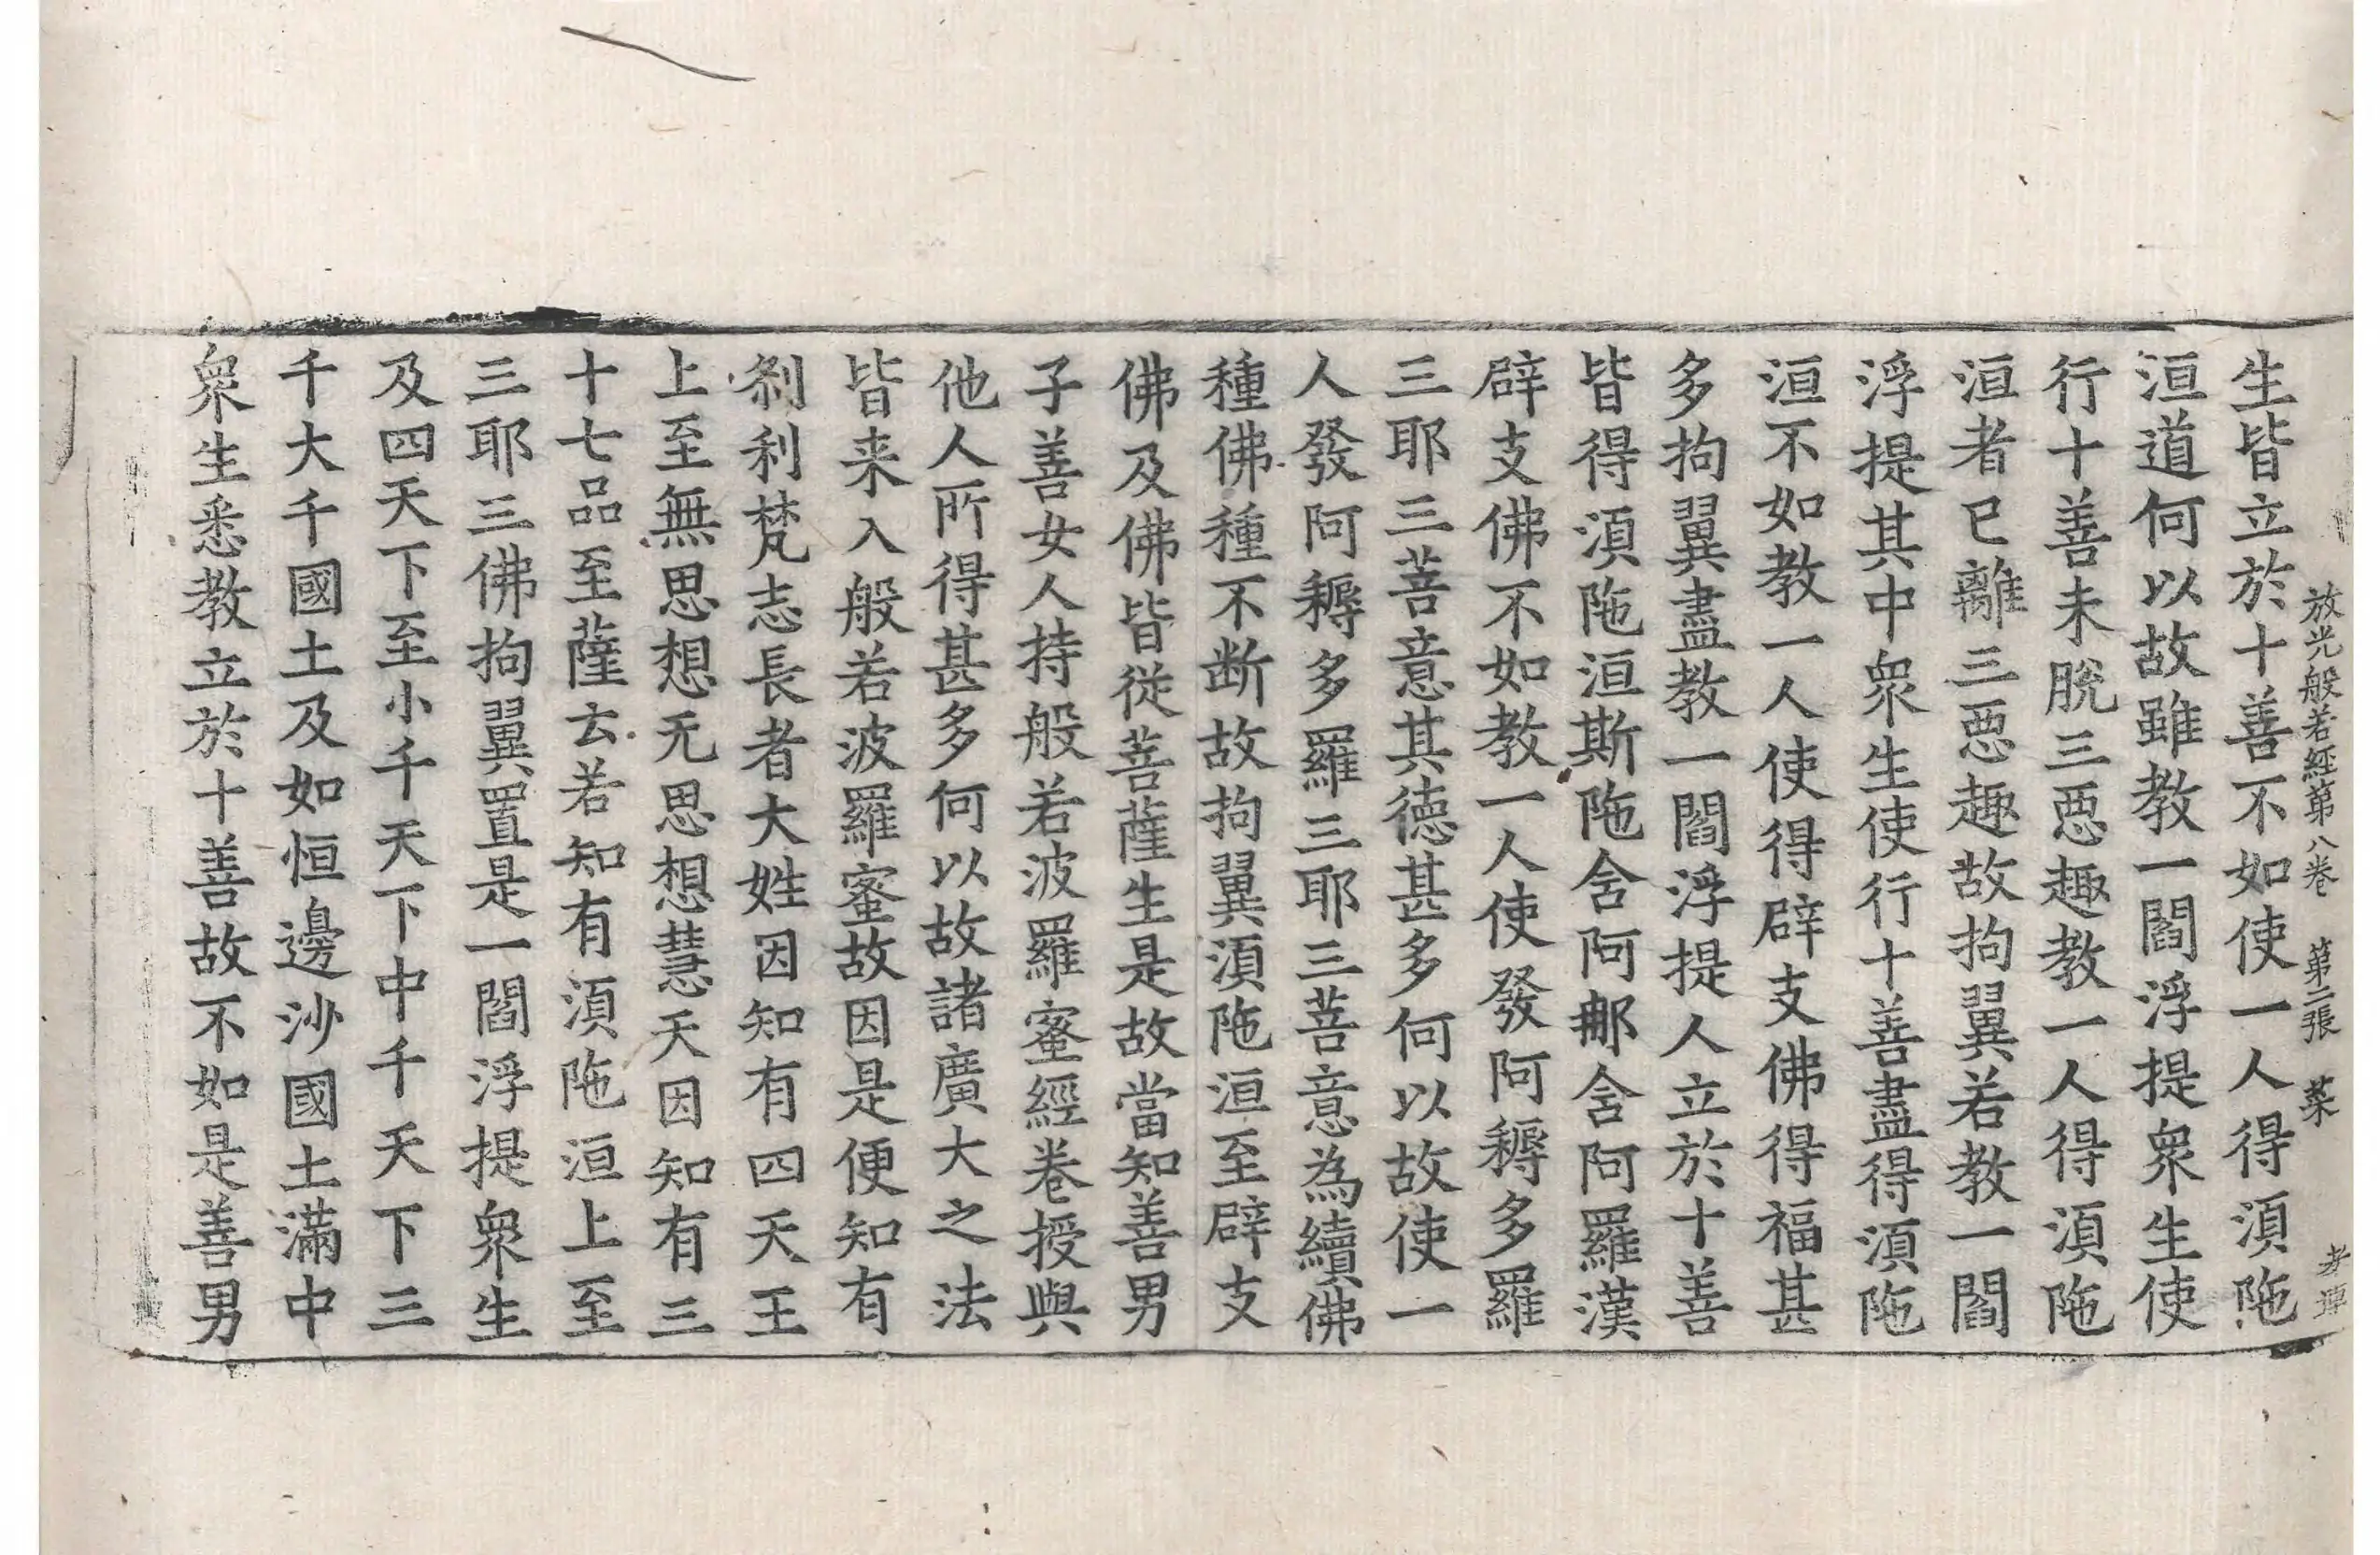 放光般若經第八卷 第二張 菜
生皆立於十善不如使一人得湏陁
洹道何以故雖教一閻浮提衆生使
行十善未脫三惡趣教一人得湏陁
洹者已離三惡趣故拘翼若教一閻
浮提其中衆生使行十善盡得湏陁
洹不如教一人使得辟支佛得福甚
多拘翼盡教一閻浮提人立於十善
皆得湏陁洹斯陁含阿那含阿羅漢
辟支佛不如教一人使發阿耨多羅
三耶三菩意其德甚多何以故使一
人發阿耨多羅三耶三菩意為續佛
種佛種不断故拘翼湏陁洹至辟支
佛及佛皆從菩薩生是故當知善男
子善女人持般若波羅蜜經卷授與
他人所得甚多何以故諸廣大之法
皆来入般若波羅蜜故因是便知有
刹利梵志長者大姓因知有四天王
上至無思想无思想慧天因知有三
十七品至薩云若知有湏陁洹上至
三耶三佛拘翼置是一閻浮提衆生
及四天下至小千天下中千天下三
千大千國土及如恒邊沙國土滿中
衆生悉教立於十善故不如是善男